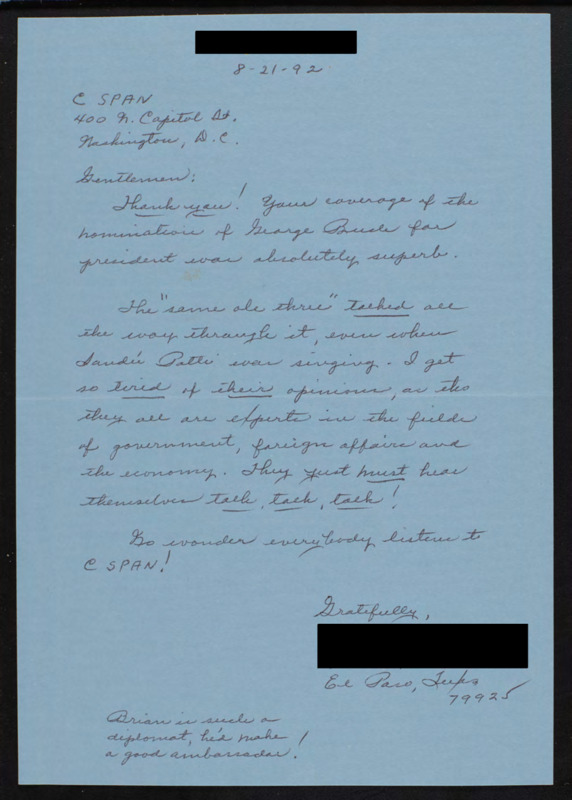 8-21-92
C SPAN
400 N. Capitol St.
Washington, D.C.
Gentlemen:
Thank you! Your coverage of the
nomination of George Bush for
president was absolutely superb.
The "same ole three" talked all
the way through it, even when
Sandi Patti was singing. I get
so tired of their opinions, as tho
they all are experts in the fields
of government, foreign affairs and
the economy. They just must hear
themselves talk, talk, talk!
No wonder everybody listens to
C SPAN!
Gratefully,
El Paso, Texas
79925
Brian is such a
diplomat, he'd make
a good ambassador!